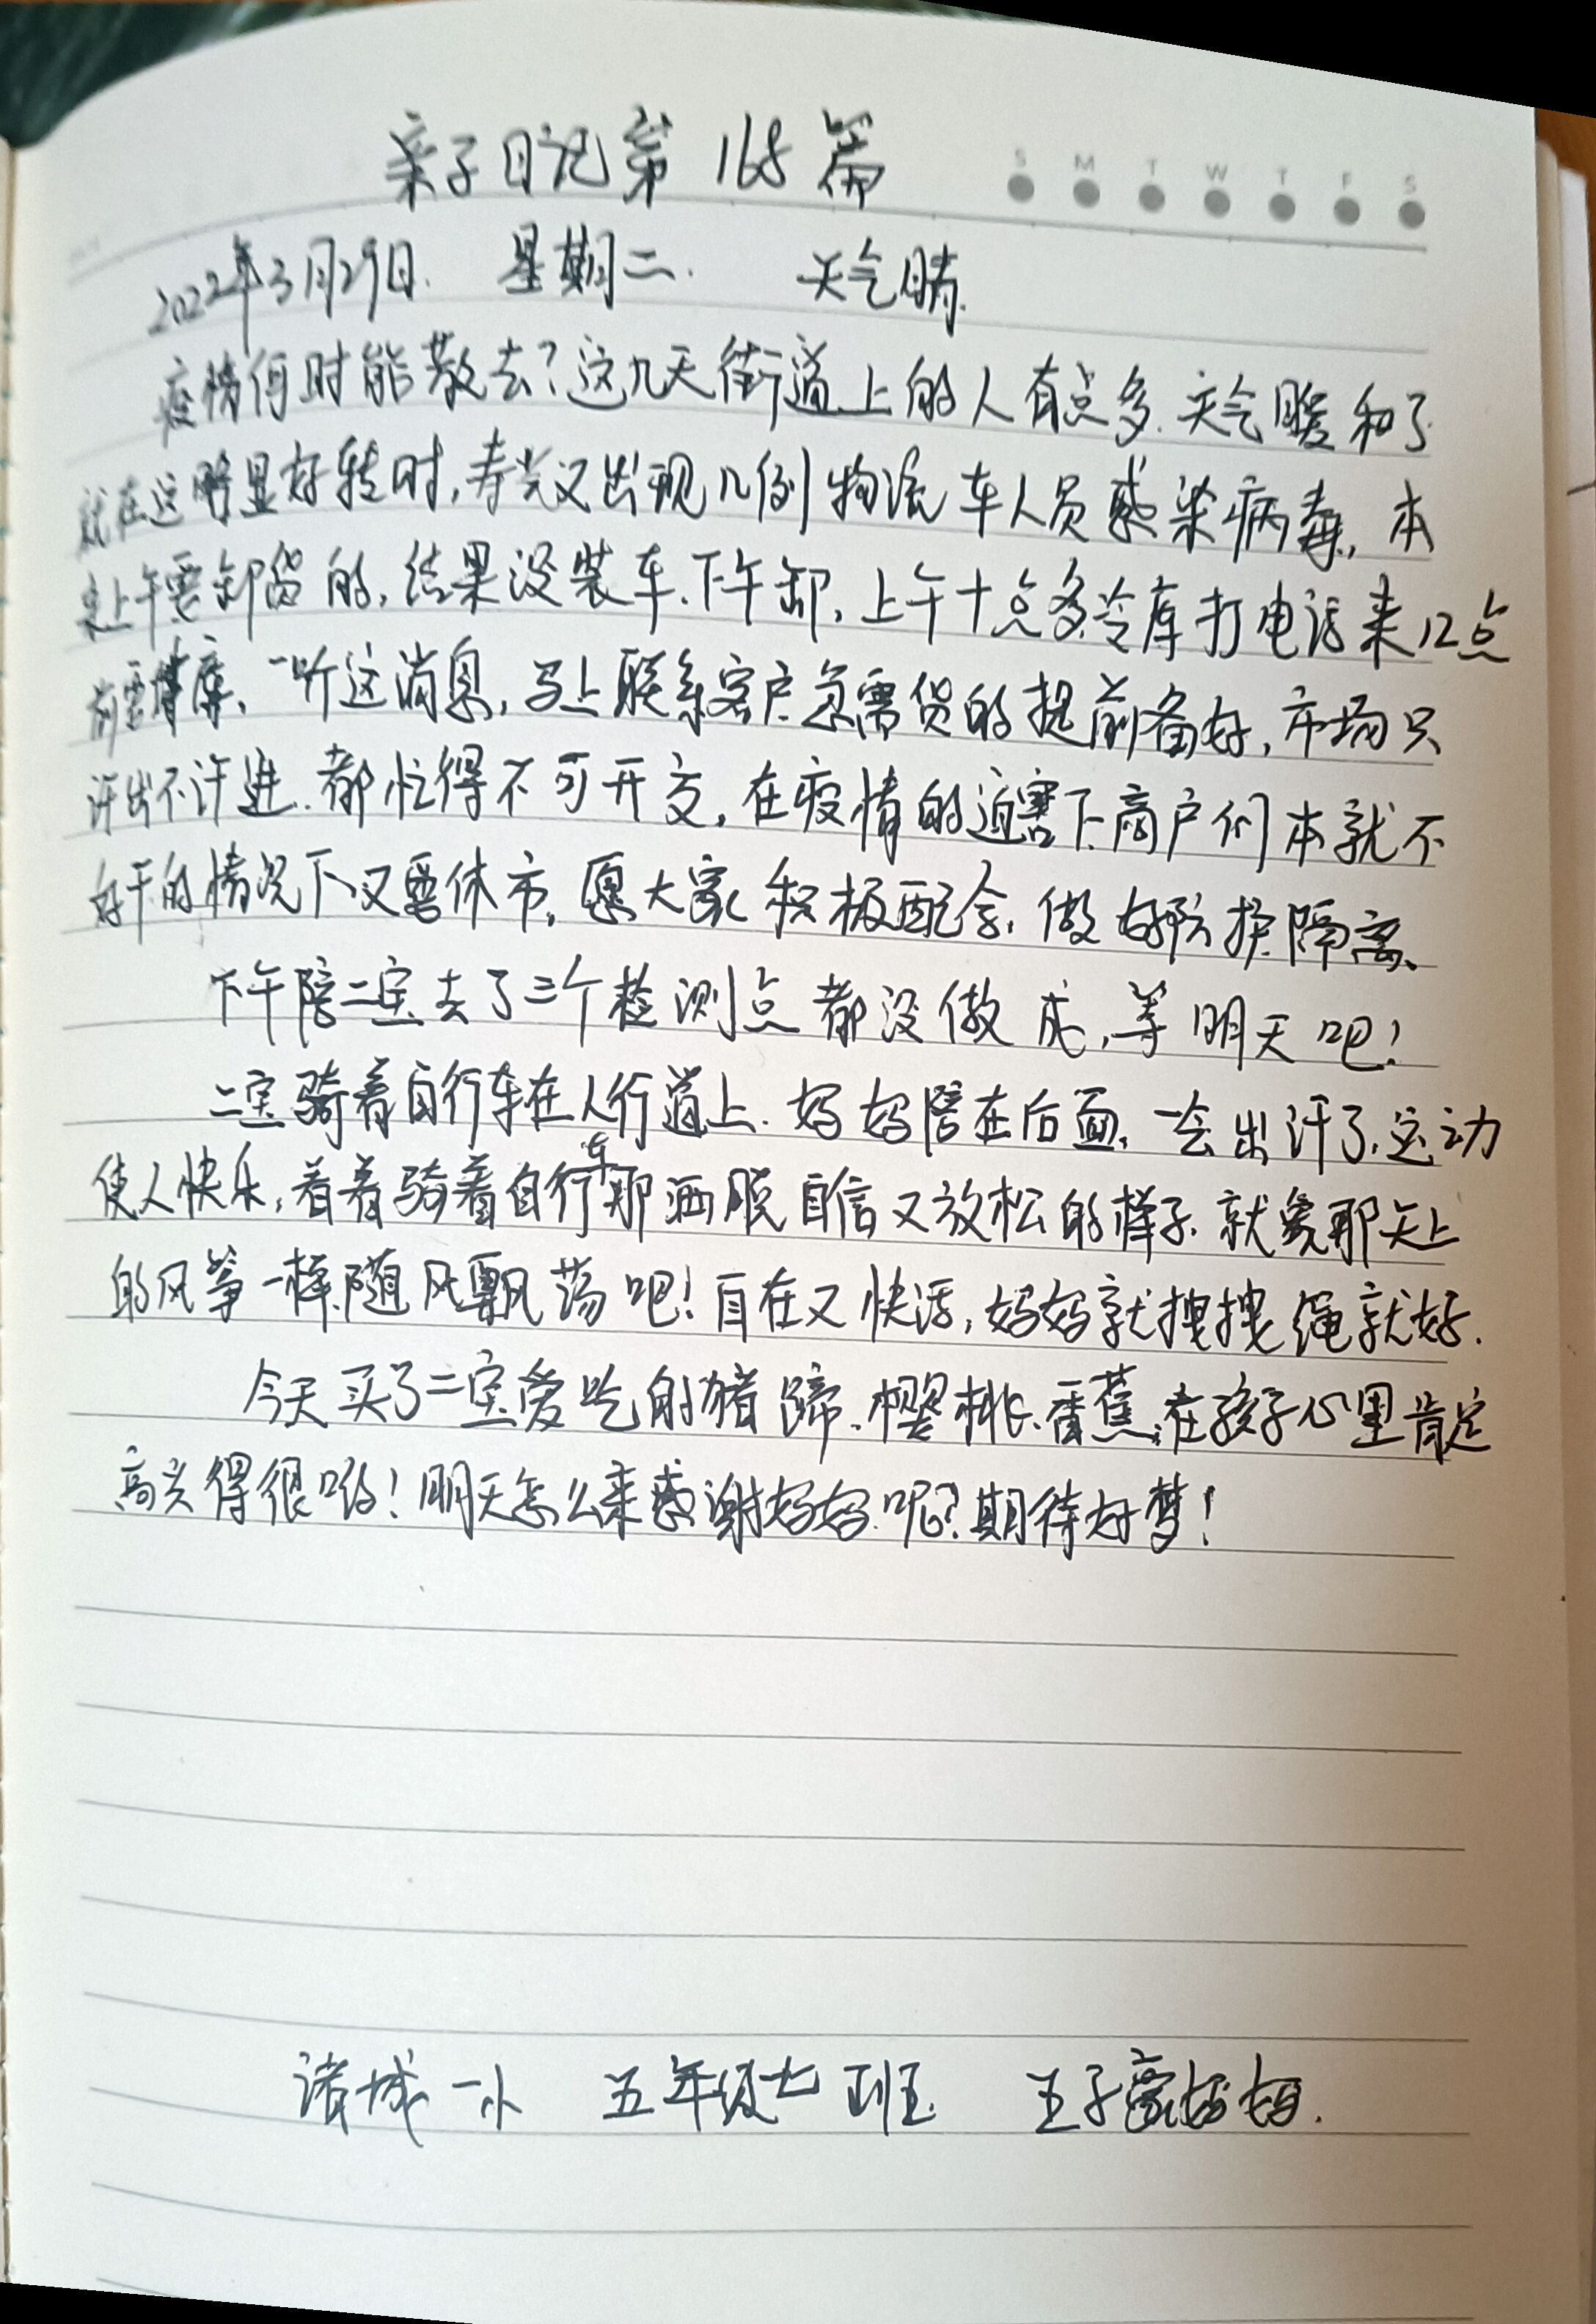 亲子日记第168篇
S M T W T F S
2022年3月29日. 星期二. 天气晴.
疫情何时能散去?这几天街道上的人有点多.天气暖和了.
就在这明显好转时,寿光又出现几例物流车人员感染病毒,本
来上午要卸货的,结果没装车.下午卸,上午十点多冷库打电话来12点
前要封库,一听这消息,马上联系客户急需货的提前备好,市场只
许出不许进.都忙得不可开交,在疫情的迫害下.商户们本就不
好干的情况下又要休市,愿大家积极配合,做好防护隔离、
下午陪二宝去了三个检测点都没做成,等明天吧!
二宝骑着自行车在人行道上.妈妈陪在后面,一会出汗了.运动
使人快乐,看着骑着自行车那洒脱自信又放松的样子.就象那天上
的风筝一样随风飘荡吧!自在又快活,妈妈就拽拽绳就好.
今天买了二宝爱吃的猪蹄.樱桃.香蕉,在孩子心里肯定
高兴得很哟!明天怎么来感谢妈妈呢?期待好梦!
诸城一小 五年级七班 王子豪妈妈.